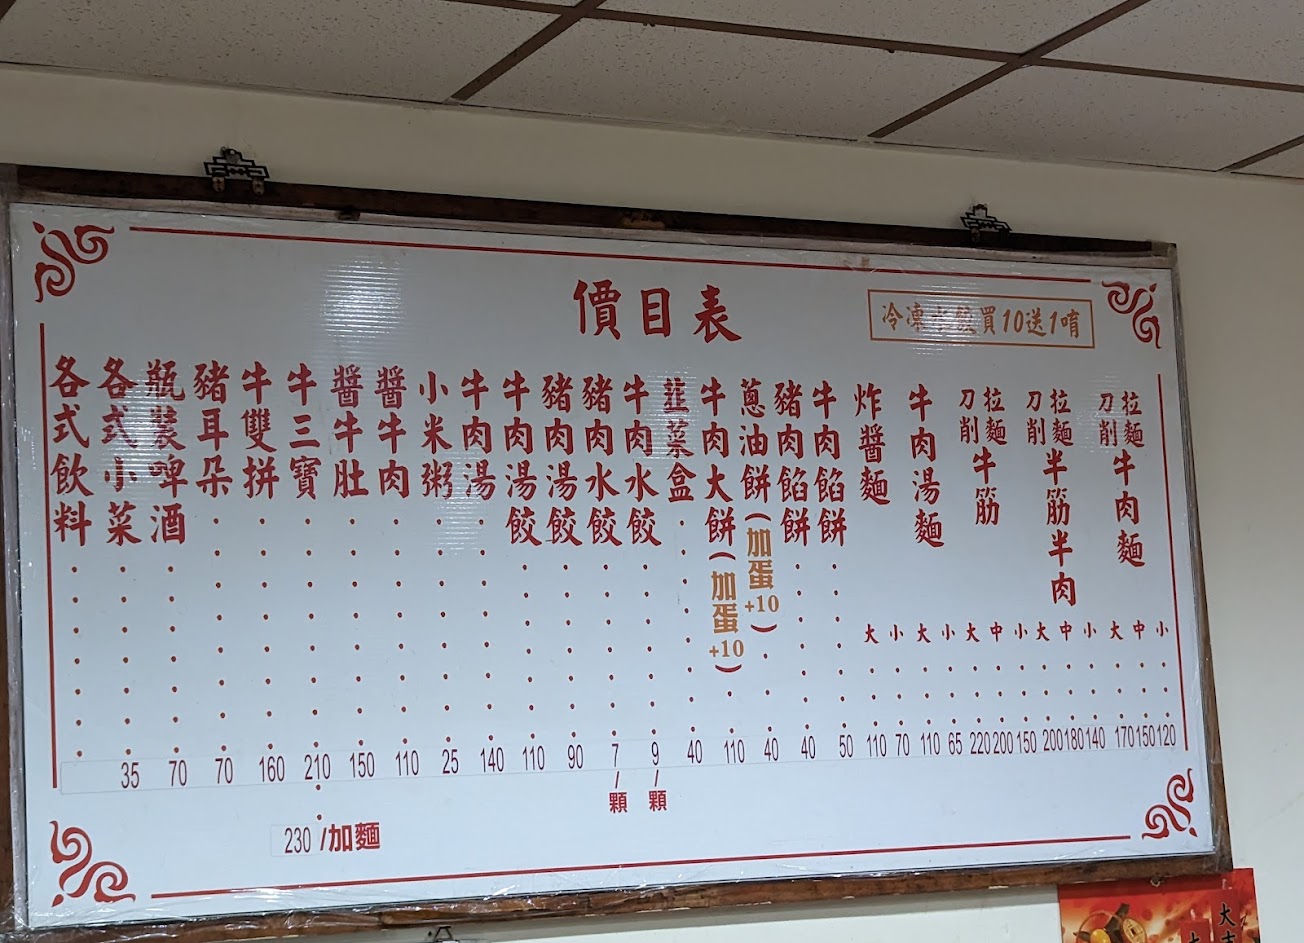 價目表
冷凍水餃買10送1唷
拉麵
刀削
牛肉麵 大170 中150 小120
拉麵
刀削
半筋半肉 大200 中180 小140
拉麵
刀削
牛筋 大220 中200 小150
牛肉湯麵 大110 小65
炸醬麵 大110 小70
牛肉餡餅 50
豬肉餡餅 40
蔥油餅(加蛋+10) 40
牛肉大餅(加蛋+10) 110
韮菜盒 40
牛肉水餃 9/顆
豬肉水餃 7/顆
豬肉湯餃 90
牛肉湯餃 110
牛肉湯 140
小米粥 25
醬牛肉 110
醬牛肚 150
牛三寶 210
230/加麵
牛雙拼 160
豬耳朵 70
瓶裝啤酒 70
各式小菜 35
各式飲料